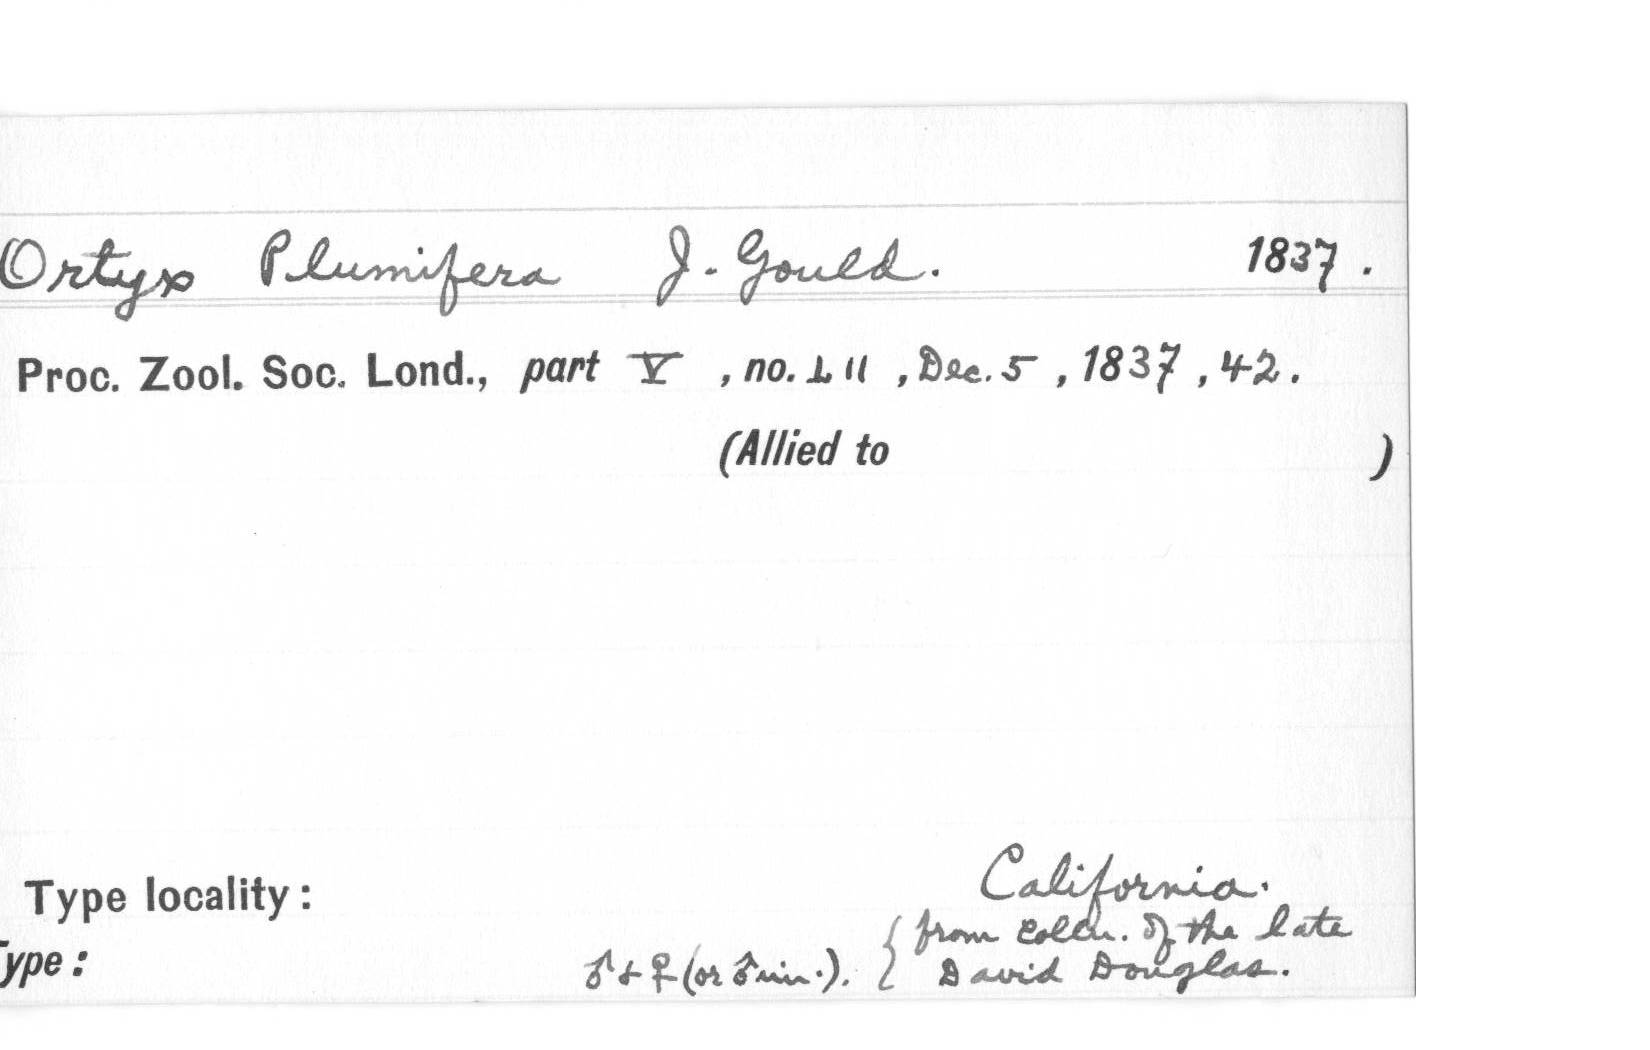 Ortyx Plumifera J. Gould. 1837.
Proc. Zool. Soc. Lond., part V, no. LII, Dec. 5, 1837, 42.
(Allied to )
Type locality: California.
ype: ♂ & ♀ (or ♂ im.). { from colln. of the late
David Douglas.